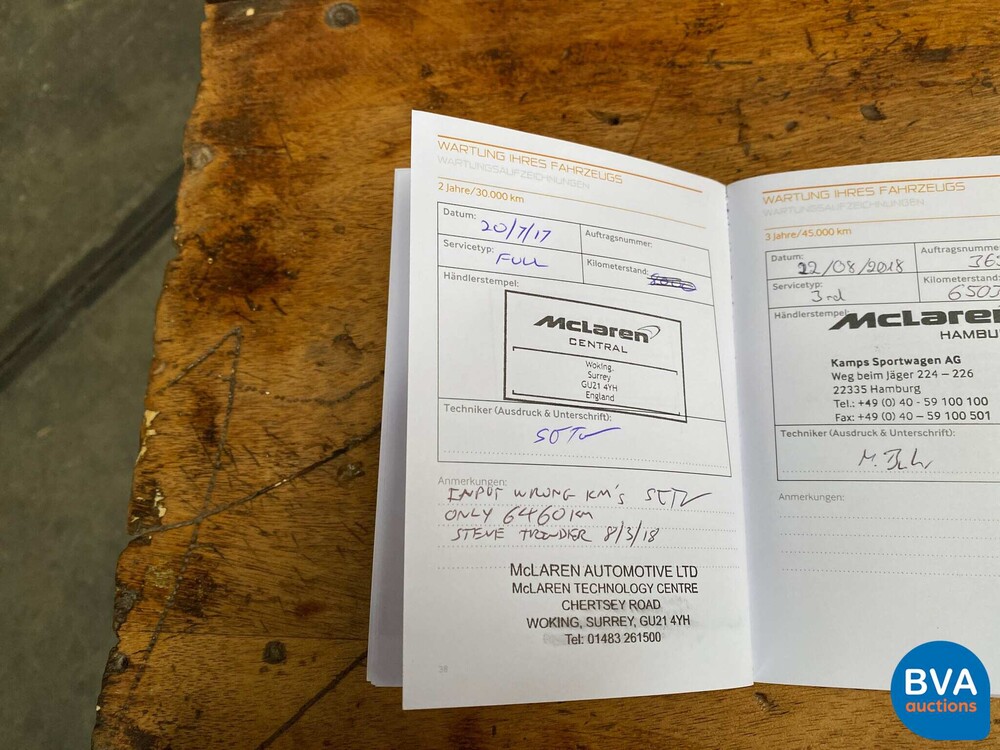 WARTUNG IHRES FAHRZEUGS
WARTUNGSAUFZEICHNUNGEN
2 Jahre/30.000 km
Datum: 20/7/17
Auftragsnummer:
Servicetyp: FULL
Kilometerstand:
Händlerstempel:
McLaren
CENTRAL
Woking,
Surrey
GU21 4YH
England
Techniker (Ausdruck & Unterschrift):
Anmerkungen:
INPUT WRONG KM'S
ONLY 6460KM
STEVE 8/3/18
McLAREN AUTOMOTIVE LTD
McLAREN TECHNOLOGY CENTRE
CHERTSEY ROAD
WOKING, SURREY, GU21 4YH
Tel: 01483 261500
38
WARTUNG IHRES FAHRZEUGS
WARTUNGSAUFZEICHNUNGEN
3 Jahre/45.000 km
Datum: 22/08/2018
Auftragsnumme
Servicetyp: 3rd
Kilometerstand: 6503
Händlerstempel:
McLaren
HAMBU
Kamps Sportwagen AG
Weg beim Jäger 224 – 226
22335 Hamburg
Tel.: +49 (0) 40 - 59 100 100
Fax: +49 (0) 40 – 59 100 501
Techniker (Ausdruck & Unterschrift):
Anmerkungen:
BVA
auctions